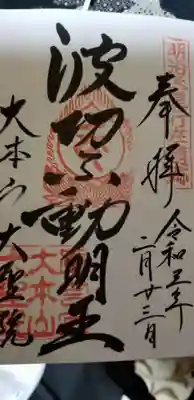 奉拝
令和三年
二月廿三日
波切不動明王
大本山 大聖院
大本山